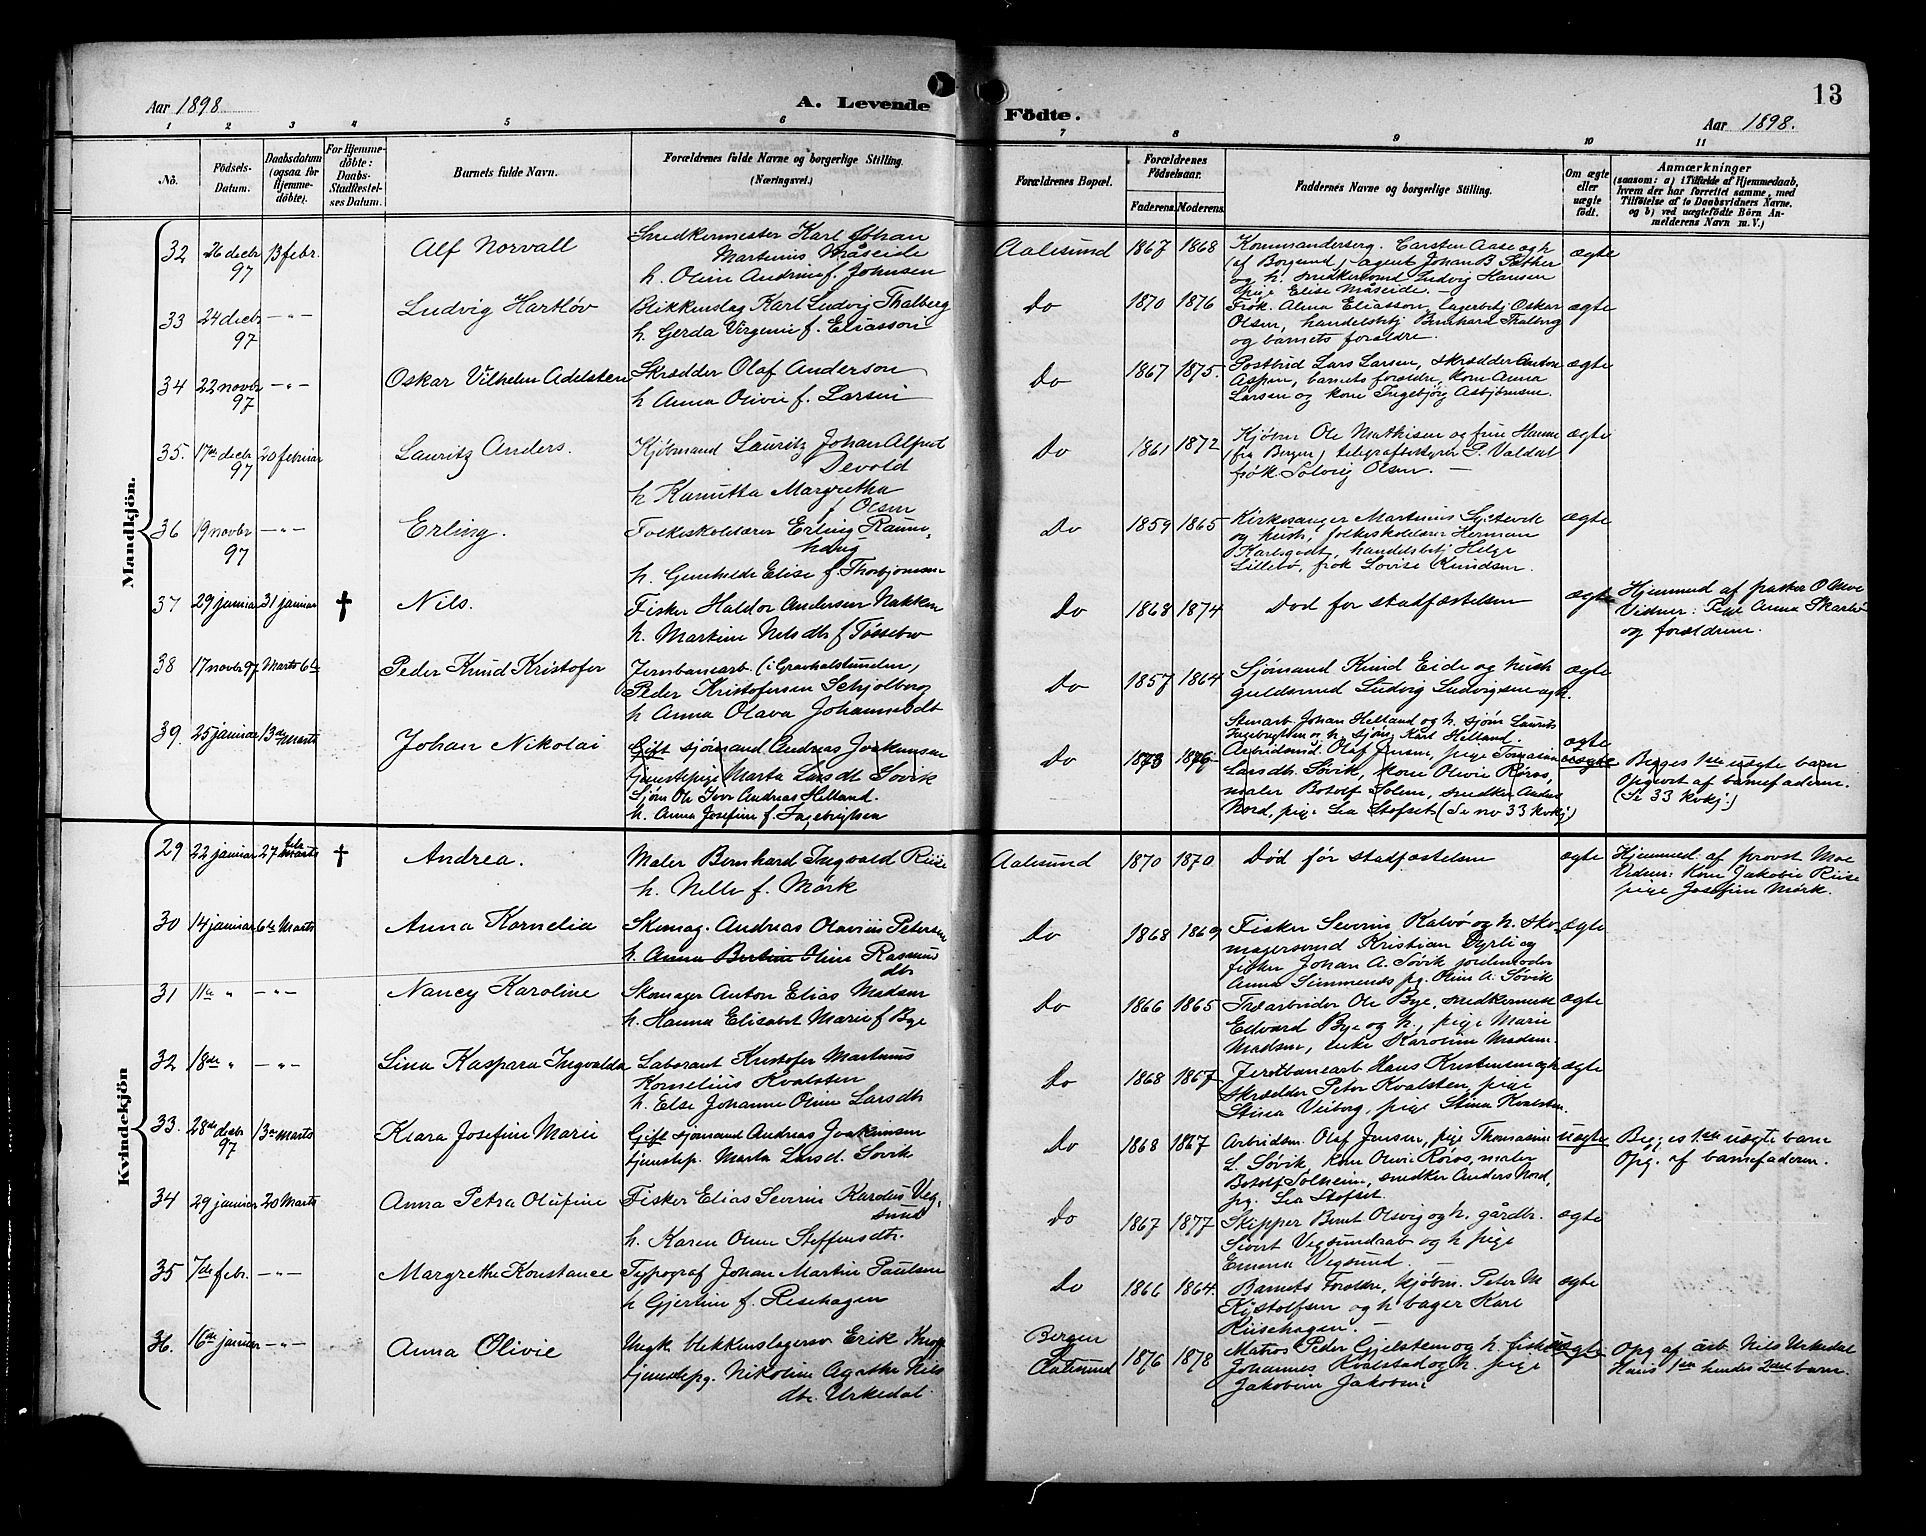 Aar 1898. A. Levende Födte. Aar 1898. 13
1 2 3 4 5 6 7 8 9 10 11
No. Födsels-Datum. Daabsdatum (ogsaa for Hjemmedöbte). For Hjemmedöbte: Daabs-Stadfæstelses Datum. Burnets fulde Navn. Forældrenes fulde Navne og borgerlige Stilling. (Næringsvei.) Forældrenes Bopæl. Forældrenes Födselsaar. Faderens. Moderens. Faddernes Navne og borgerlige Stilling. Om ægte eller uægte födt. Anmærkninger (saasom: a) i Tilfælde af Hjemmedaab, hvem der har forrettet samme, med Tilföielse af to Daabsvidners Navne. og b) ved uægtefödte Börn Anmelderens Navn m. V.)
Mandkjön.
32 26 decbr 97 13 febr. Alf Norvall Snedkermester Karl Johan
Martinus Måseide
h. Oline Andrine f. Johnsen
Aalesund 1867 1868 Kommanderserg. Carsten Aase og h
(af Borgund) agent Johan B
og h. snedkersvend Ludvig Hansen
pige Elise Måseide. —
ægte
33 24 decbr 97 –"– Ludvig Hartløv Blikkenslag Karl Ludvig Thalberg
h. Gerda Virgenie f. Eliasson
Do 1870 1876 Frøk. Alma Eliasson, lagerbetj Oskar
Olsen, handelsbetj Bernhard Thalberg
og barnets forældre.
ægte
34 22 novbr 97 –"– Oskar Vilhelm Adelsten Skrædder Olaf Anderson
h Anna Olivie f. Larsen
Do 1867 1875. Postbud Lars Larsen, skrædder Anton
Aspen, barnets forældre, kone Anna
Larsen og kone Ingebjørg Asbjørnsen.
ægte
35. 17de decbr 97 20 februar Lauritz Anders. Kjøbmand Lauritz Johan Alfred
Devold
h Kanutta Margretha
f Olsen
Do 1861 1872 Kjøbm Ole Mathisen og frue Hanne
(fra Bergen) telegrafbestyrer P. Valdal
frøk. Solveig Olsen. —
ægte
36 19 novbr 97 –"– Erling. Folkeskolelærer Erling Rønne-
haug
h. Gunhilde Elise f. Thorbjørnsen
Do 1859 1865 Kirkesanger Martinus
og hustr, folkeskolelærer Herman
Karlsgodt, handelsbetj Helge
Lillebø, frøk Lovise Knudsen.
ægte
37 29 januar 31 januar † Nils. Fisker Haldor Andersen Nakken
h. Martine Nelsdtr f Tøssebro
Do 1868 1874 Død før stadfæstelsen ægte
Hjemmed af pastor
Vidner: Pige Anna
og forældrene.
38 17 novbr 97 Marts 6te Peder Knud Kristofer Jernbanearb. (i Gravhalstunnelen)
Peder Kristofersen Schjølberg
h Anna Olava Johannesdtr
Do 1857 1864 Sjømand Knud Eide og hustr
guldsmed Ludvig Ludvigsen og h.
ægte
39. 25 januar 13de Marts Johan Nikolai Gift sjømand Andreas Joakimsen
tjenestepige Marta Larsdtr Søvik
Sjøm Ole Iver Andreas Helland.
h. Anna Josefine f. Ingebrigtsen
Do 1873 1876
Stenarb. Johan Helland og h. sjøm Laurits
Ingebrigtsen og h. sjøm. Karl Helland.
Arbeidsmd. Olaf Jensen, pige Tomasine
Larsdtr. Søvik, kone Olivie Røros,
maler Botolf Solem, snedker Anders
Nord, pige Lea Stofset (Se no 33 kvkj)
ægte
uægte
Begges 1ste uægte barn
Opgivet af barnefaderen.
(Se 33 kvkj.)
Kvindekjön
29 22 januar 27 Marts † Andrea. Maler Bernhard Ingvald Riise
h. Nelle f. Mørk
Aalesund 1870 1870 Død før stadfæstelsen ægte
Hjemmed. af provst Moe
Vidner: Kone Jakobie Riise
pige Josefine Mørk.
30 14 januar 6te Marts Anna Kornelia Skomag. Andreas Olavius Petersen
h. Anna Bertine Oline Rasmus
dtr
Do 1868 1869 Fisker Severin Kalvø og h. sko-
magersvend Kristian Gyrli og
fisker Johan A. Søvik jordemoder
Anna Simmenes pg. Oline A. Søvik
ægte
31 11te " –"– Nancy Karoline Skomager Anton Elias Madsen
h. Hanna Elisabet Marie f Bye
Do 1866 1865 Træarbeider Ole Bye, snedkersvend
Edvard Bye og h, pige Marie
Madsen, enke Karoline Madsen.
ægte
32 18de " –"– Lina Kaspara Ingvalda Laborant Kristofer Martinus
Kornelius Kvalsten
h. Else Johanne Oline Larsdtr
Do 1868 1867 Jernbanearb Hans Kristensen og h
Skrædder Peter Kvalsten, pige
Stina Veiberg, pige Stina Kvalsten.
ægte
33. 28de decbr 97 13de Marts Klara Josefine Marie Gift sjømand Andreas Joakimsen
tjenestep. Marta Larsd. Søvik
Do 1868 1867 Arbeidsm. Olaf Jensen, pige Thomasine
L. Søvik, kone Olivie Røros, maler
Botolf Solheim, snedker Anders Nord,
pg. Lea Stofset.
uægte
Begges 1ste uægte barn
Opg. af barnefaderen.
34 29 januar 20 Marts Anna Petra Olufine Fisker Elias Severin Kardus Veg-
sund
h. Karen Oline Steffensdtr.
Do 1867 1877 Skipper Bernt Olsvig og h. gårdbr.
Sivert Vegsundsab og h pige
Emma Vegsund. —
ægte
35 7de febr. –"– Margrethe Konstance Typograf Johan Martin Paulsen
h Gjertine f. Risehagen
Do 1866 1864. Barnets Forældre, kjøbm. Peter M
Kristofsen og h bager Karl
Riisehagen. —
ægte
36. 16de januar –"– Anna Olivie Ungk. blekkenslagersv Erik Knoff
tjenestepg. Nikoline Agathe Nils
dtr. Urkedal.
Bergen
Aalesund
1876 1878 Matros Peder Gjelsten og h. fisker
Johannes Kvalstad og h. pige
Jakobine Jakobsen
uægte
Opg af arb Nils Urkedal
Hans 1ste hendes 2det barn.